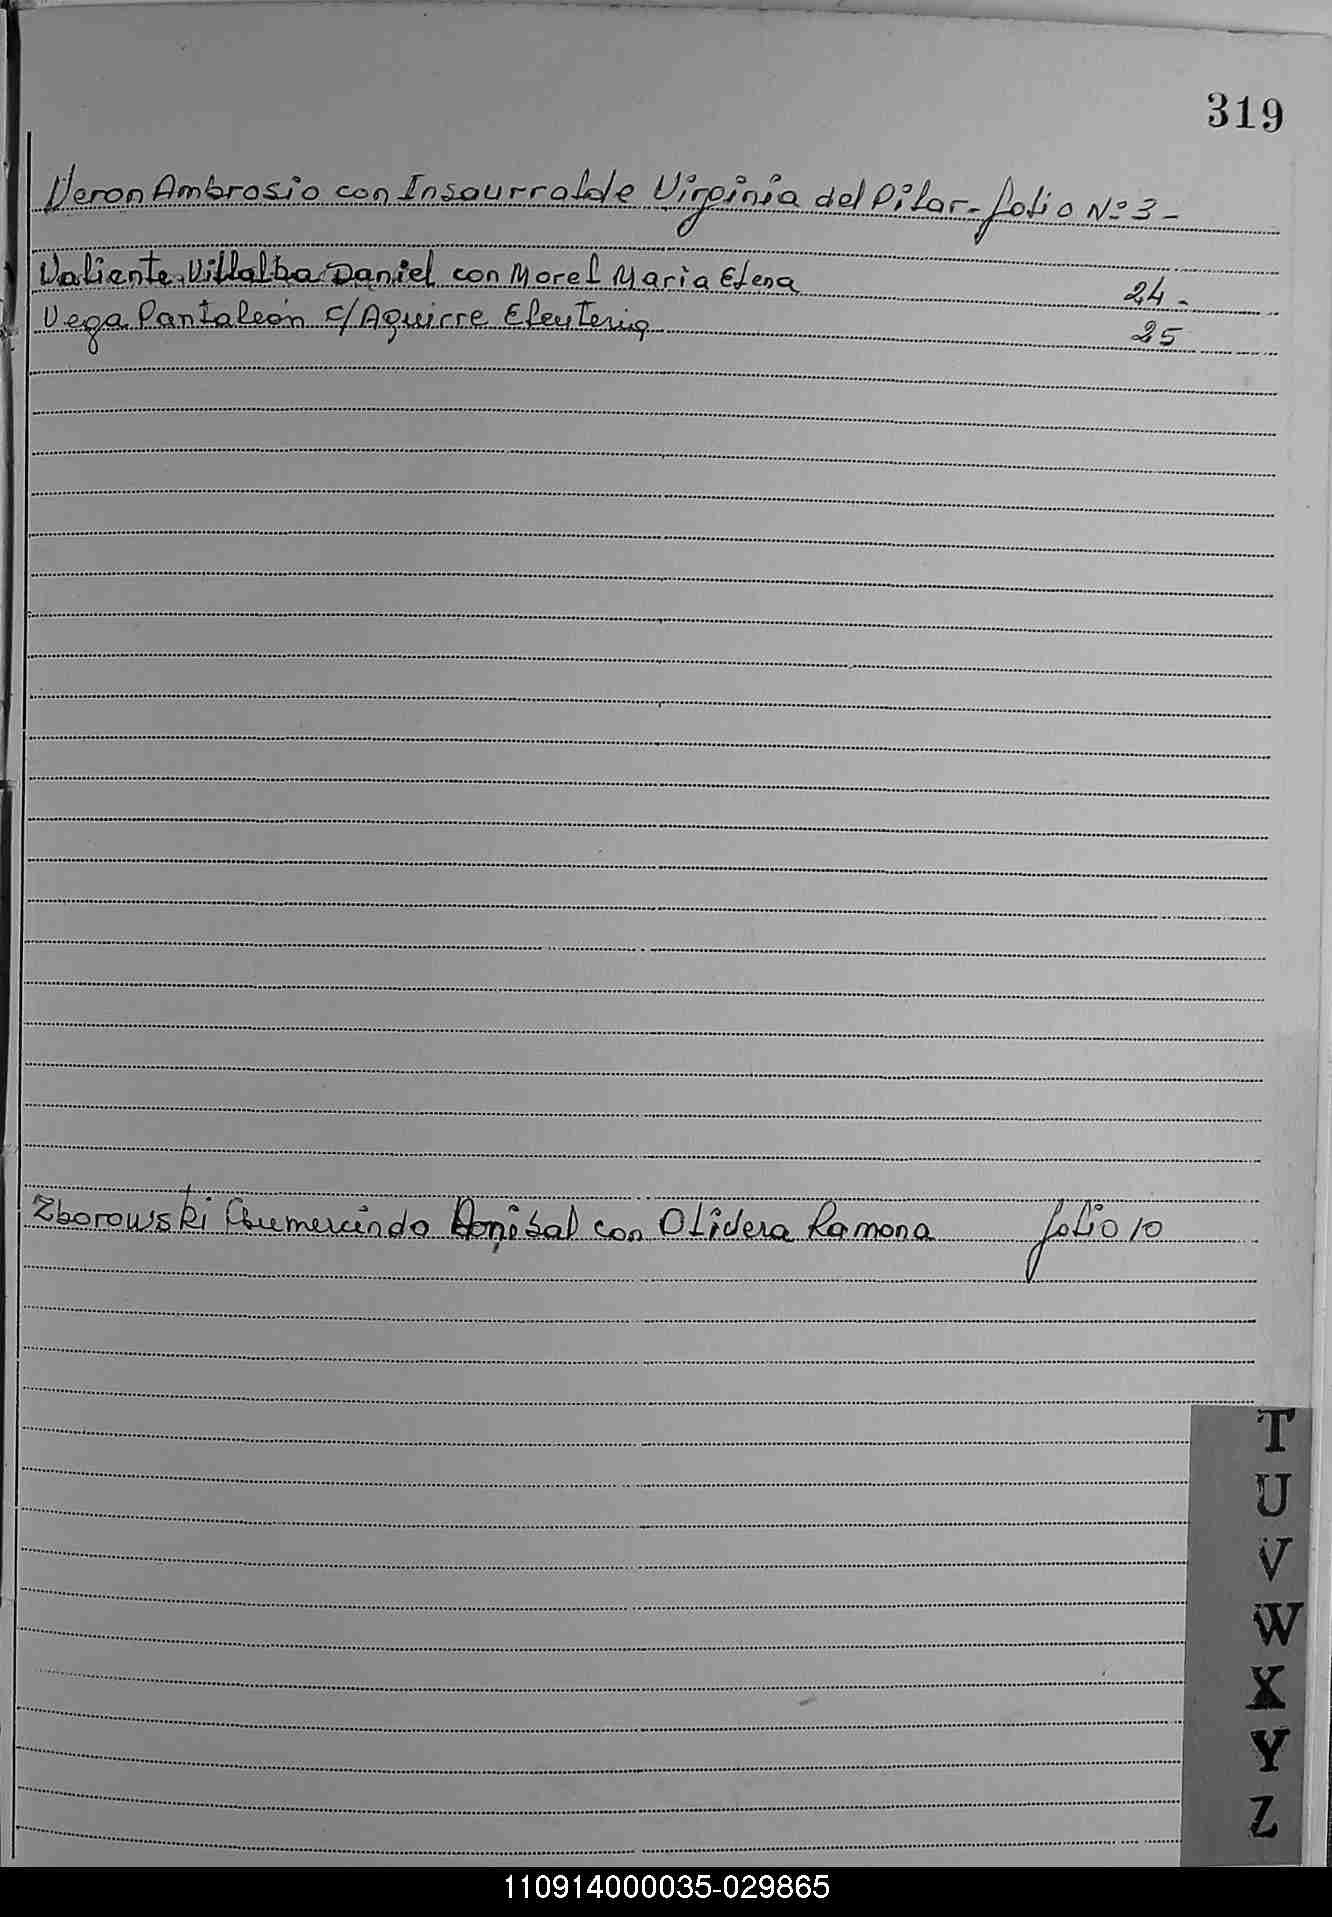 319
Veron Ambrosio con Insaurralde Virginia del Pilar - folio Nº 3 -
Valiente Villalba Daniel con Morel Maria Elena 24 -
Vega Pantaleón c/ Aguirre Eleuteria 25
Zborowski Gumercindo Anibal con Olidera Ramona folio 10
T
U
V
W
X
Y
Z
110914000035-029865